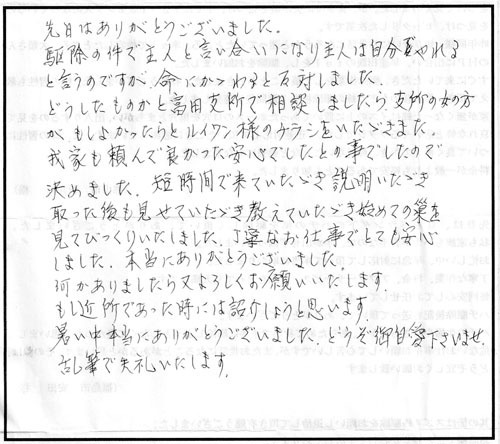 先日はありがとうございました。
駆除の件で主人と言い合いになり主人は自分でやれる
と言うのですが、命にかかわると反対しました。
どうしたものかと富田支所で相談しましたら、支所の女の方
が、もしよかったらとルイワン様のチラシをいただきました。
我家も頼んで良かった安心でしたとの事でしたので
決めました。短時間で来ていただき説明いただき
取った後も見せていただき教えていただき始めての巣を
見てびっくりいたしました。丁寧なお仕事でとても安心
しました。本当にありがとうございました。
何かありましたら又よろしくお願いいたします
もし近所であった時には紹介しようと思います。
暑い中本当にありがとうございました。どうぞ御自愛下さいませ。
乱筆で失礼いたします。